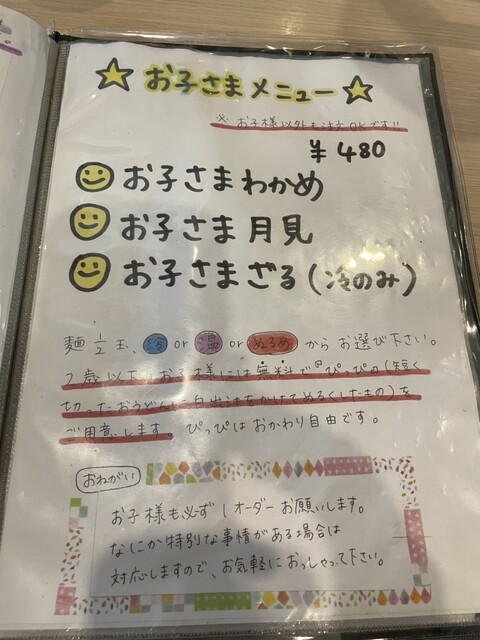 お子さまメニュー
※ お子様以外も注文OKです!!
¥480
お子さまわかめ
お子さま月見
お子さまざる(冷のみ)
麺1/2玉、冷or温orぬるめからお選び下さい。
2歳以下のお子様には無料で『ぴっぴ』(短く
切ったおうどんに白出汁をかけてぬるくしたもの)を
ご用意します。ぴっぴはおかわり自由です。
おねがい
お子様も必ず1オーダーお願いします。
なにか特別な事情がある場合は
対応しますので、お気軽におっしゃって下さい。